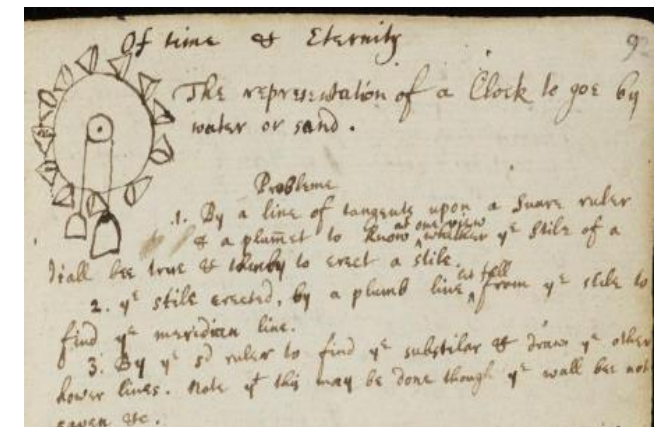 Of time & Eternity
9
The representation of a Clock to goe by
water or sand.
Probleme
.1. By a line of tangents upon a square ruler
& a plum̄et to know at one view whether yᵉ stile of a
diall bee true & thereby to erect a stile.
2. yᵉ stile erected, by a plumb line let fall from yᵉ stile to
find yᵉ meridian line.
3. By yᵉ sᵈ ruler to find yᵉ substilar & draw yᵉ other
hower lines. Note yᵗ this may be done though yᵉ wall bee not
eaven &c.